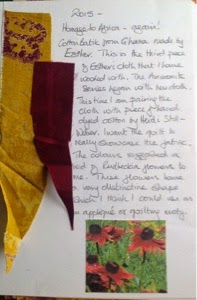 2015 -
Homage to Africa - again!
Cotton Batik from Ghana made by
Esther. This is the third piece
of Esther's cloth that I have
worked with. The Ammonite
Series Again with newcloth.
This time I am pairing the
cloth with piece
dyed cotton by Heidi Stoll-
Weber. I want the quilt to
really showcase the fabric.
The colours suggested a
bed of Rudbeckia flowers to
me. These flowers have
a very distinctive shape
which I think I could use as
an appliqué or quilting motif.